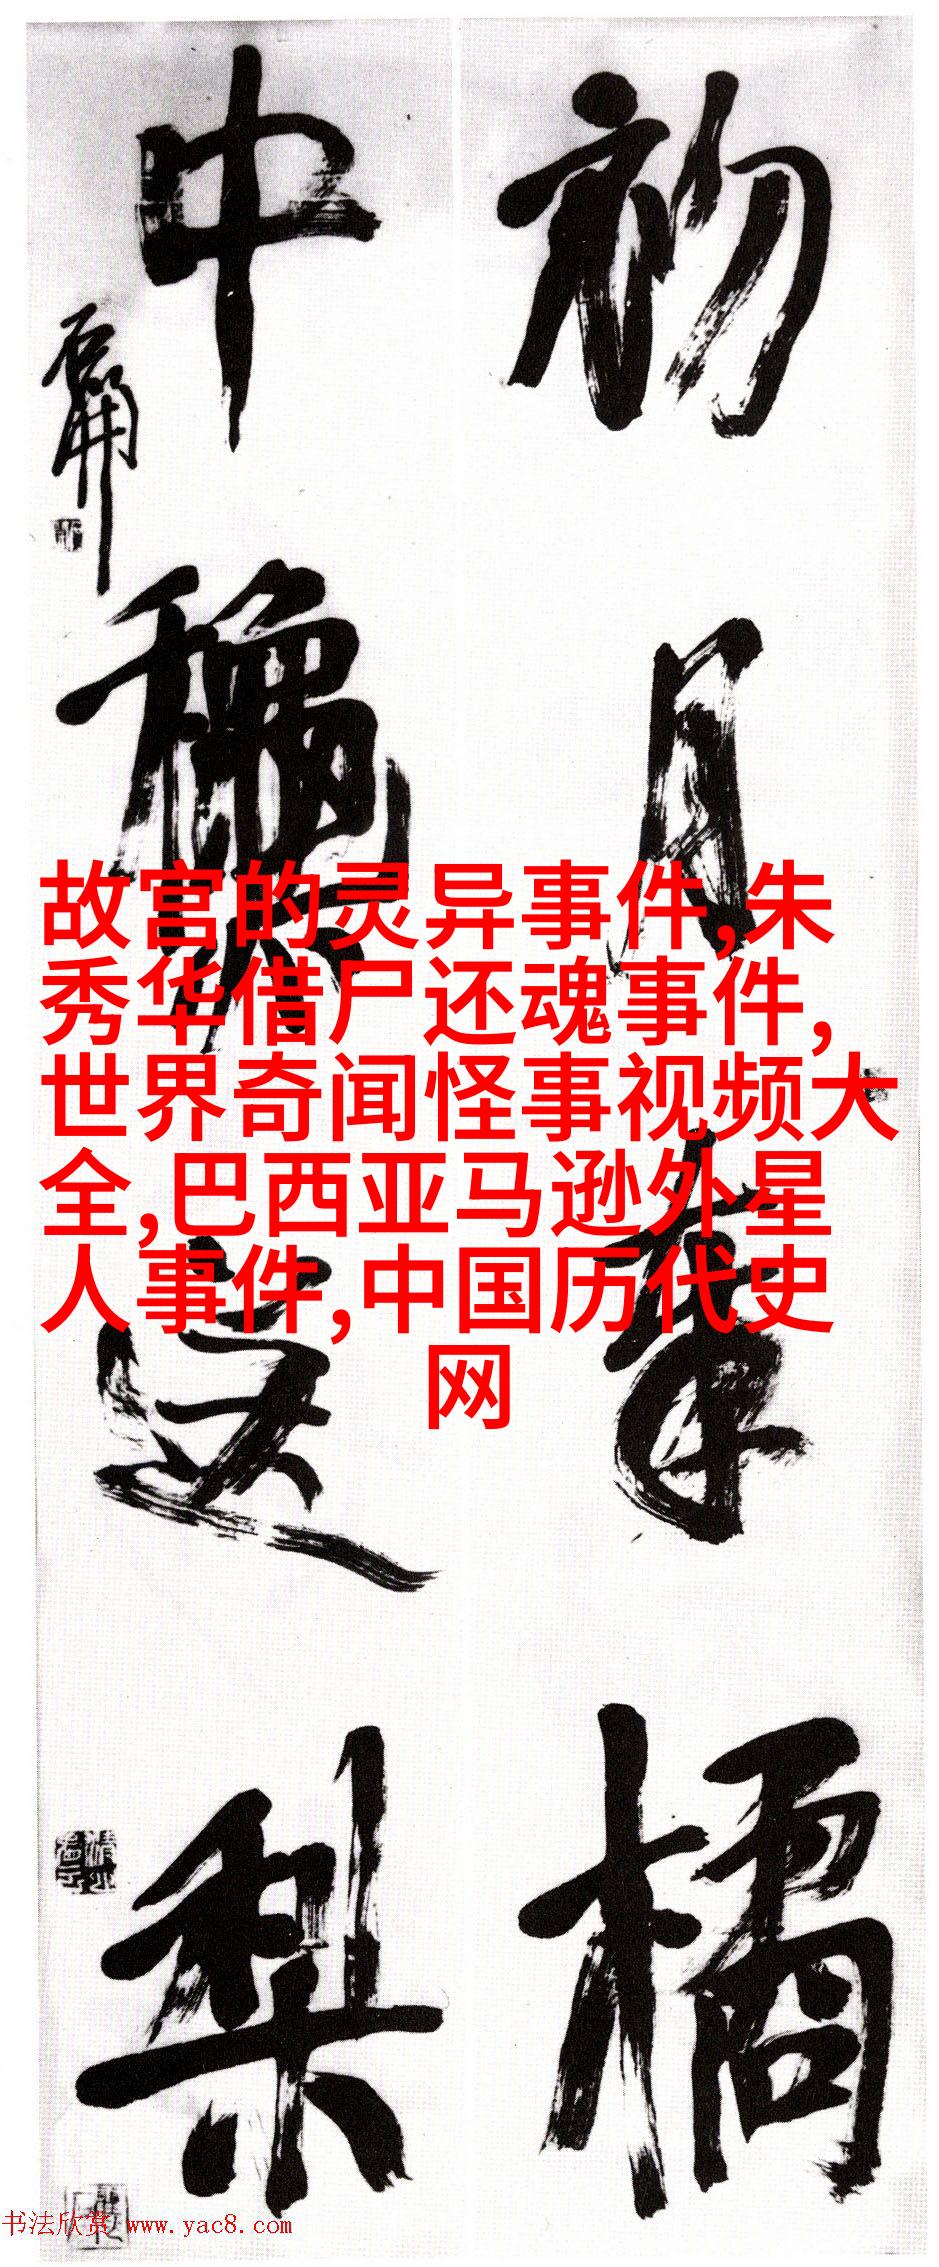 初月奉橘
中龝送梨
石開
故宫的灵异事件,朱
秀华借尸还魂事件,
世界奇闻怪事视频大
全,巴西亚马逊外星
人事件,中国历代史
网
书法欣赏 www.yac8.com